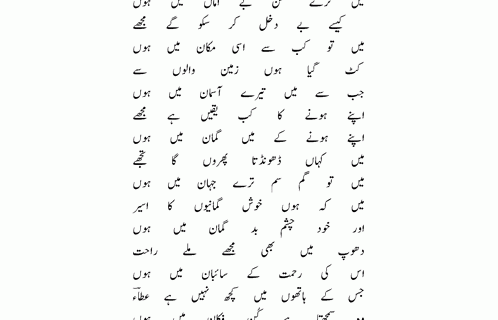 میں ترے حسن بے اماں میں ہوں
کیسے بے دخل کر سکو گے مجھے
میں تو کب سے اسی مکان میں ہوں
کٹ گیا ہوں زمین والوں سے
جب سے میں تیرے آسمان میں ہوں
اپنے ہونے کا کب یقیں ہے مجھے
اپنے ہونے کے میں گمان میں ہوں
میں کہاں ڈھونڈتا پھروں گا تجھے
میں تو گم سم ترے جہان میں ہوں
میں کہ ہوں خوش گمانیوں کا اسیر
اور خود چشم بد گمان میں ہوں
دھوپ میں بھی مجھے ملے راحت
اس کی رحمت کے سائبان میں ہوں
جس کے ہاتھوں میں کچھ نہیں ہے عطاؔ
وہ سمجھتا ہے کُن فکان میں ہوں